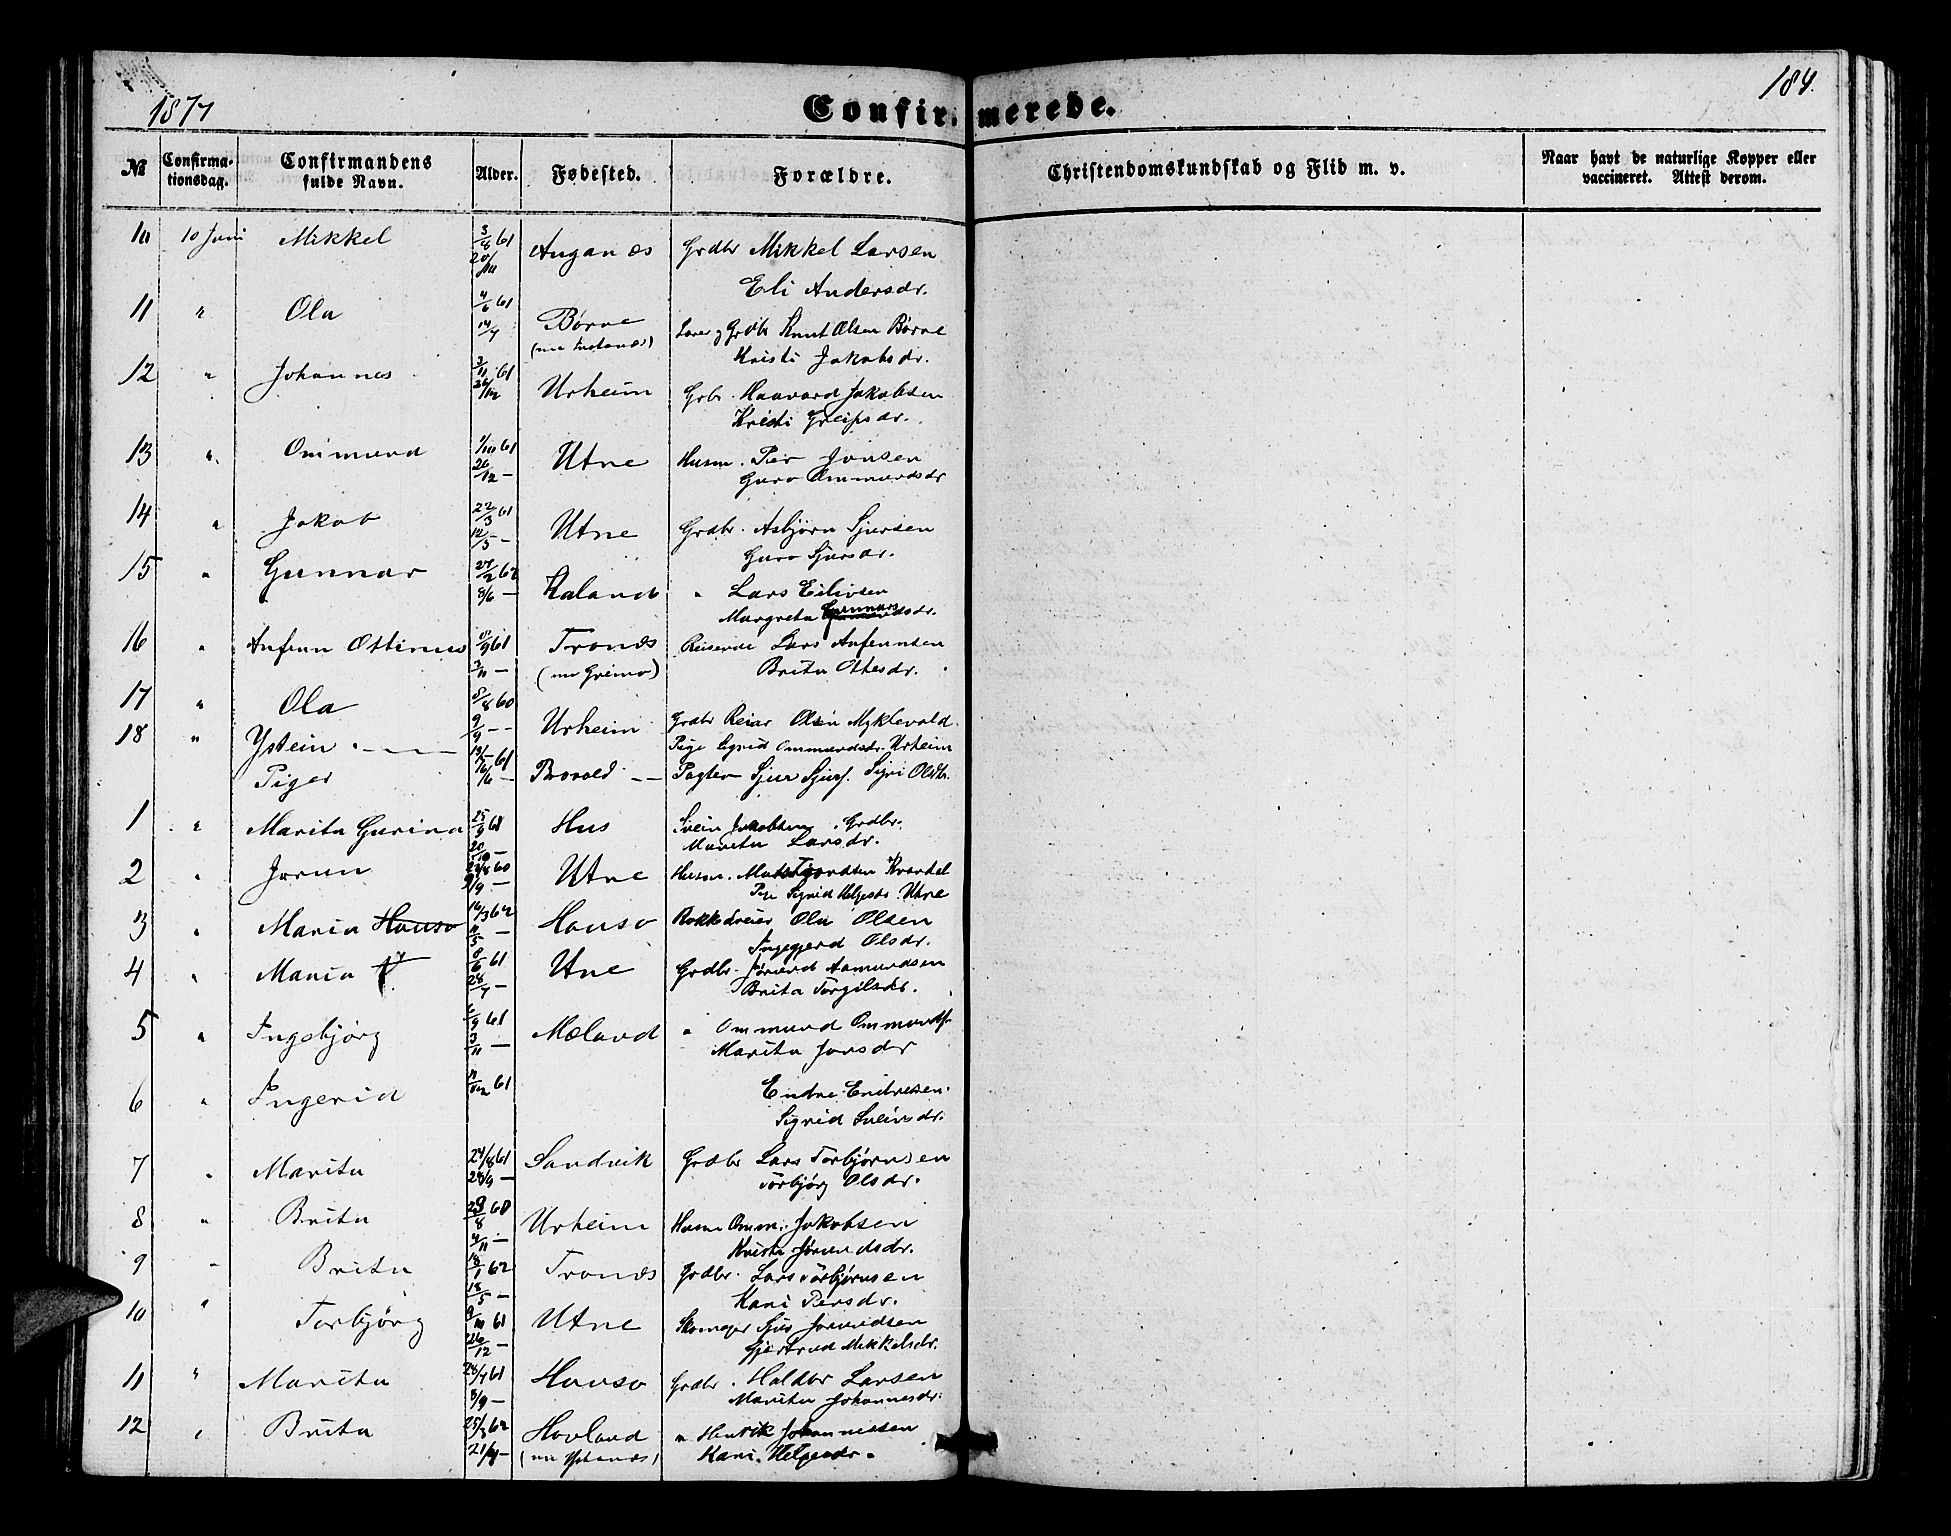 1877
Confirmerede.
184.
№ Confirmationsdag. Confirmandens fulde Navn. Alder. Fødested. Forældre. Christendomskundskab og Flid m. v. Naar havt de naturlige Kopper eller vaccineret. Attest derom.
10 10 Juni Mikkel 3/8 61 Anganæs Grdbr Mikkel Larsen
Eli Andersdr.
11 " Ola 4/6 61 14/7 Børve Lærer og Grdb Knut Olsen Børve
Kristi Jakobsdr.
12 " Johannes 3/11 61 26/12 Urheim Grbr. Haavard Jakobsen
Kristi Greipsdr.
13 " Ommund 61 26/12 — Utne Husm. Per Jonsen
Guro Ommundsdr
14 " Jakob 22/3 61 12/5 — Utne Grdbr. Asbjørn Sjursen
Guro Sjursdr.
15 " Gunnar 62 8/6 — Aaland " Lars Eilivsen
Margreta Gunnarsdr.
16 " Anfinn Ottinus 61 3/11 — Tronæs Reisende Lars Anfinnsen
(nu Grimo) Brita Ottesdr.
17 " Ola 8/8 60 9/9 — Urheim Grdbr Reiar Olsen Myklevold.
Pige Sigrid Ommundsdr. Urheim
18 " Ystein 61 — Brovold — Pagter Sjur Sjurs. Sigri Olsdr.
Piger
1 " Marita Gurina 25/9 61 Hus Svein Jakobsen, Grdbr.
Marita Larsdr.
2 " Jorun 60 9/9 — Utne Husm. Kvandal
Pige Sigrid Helgesdr. Utne
3 " Maria Hauso 16/3 62 11/5 — Hauso Rokkedreier Ola Olsen
Ingegjerd Olsdr.
4 " Maria 8/6 61 28/7 — Utne Grdbr. Jørund Aamundsen
Brita Torgilsdr.
5 " Ingebjørg 61 3/11 — Mæland " Ommund Ommunds.
Marita Jonsdr
6 " Ingerid 61 Endre Endresen.
Sigrid Sveinsdr.
7 " Marita 24/8 61 — Sandvik Grdbr Lars Torbjørnsen
Torbjørg Olsdr.
8 " Brita 60 4/11 — Urheim Husm Omm. Jakobsen
Kristi Jørundsdr.
9 " Brita 18/1 62 18/5 — Tronæs Grdbr. Lars Torbjørnsen
Kari Persdr.
10 " Torbjørg 61 26/12 — Utne Skomager Sjur Jørundsen
Gjertrud Mikkelsdr.
11 " Marita 28/7 61 8/9 — Hauso Grdbr. Haldor Larsen
Marita Johannesdr.
12 " Brita 25/3 62 — Hovland " Henrik Johannessen
Kari Helgesdr.